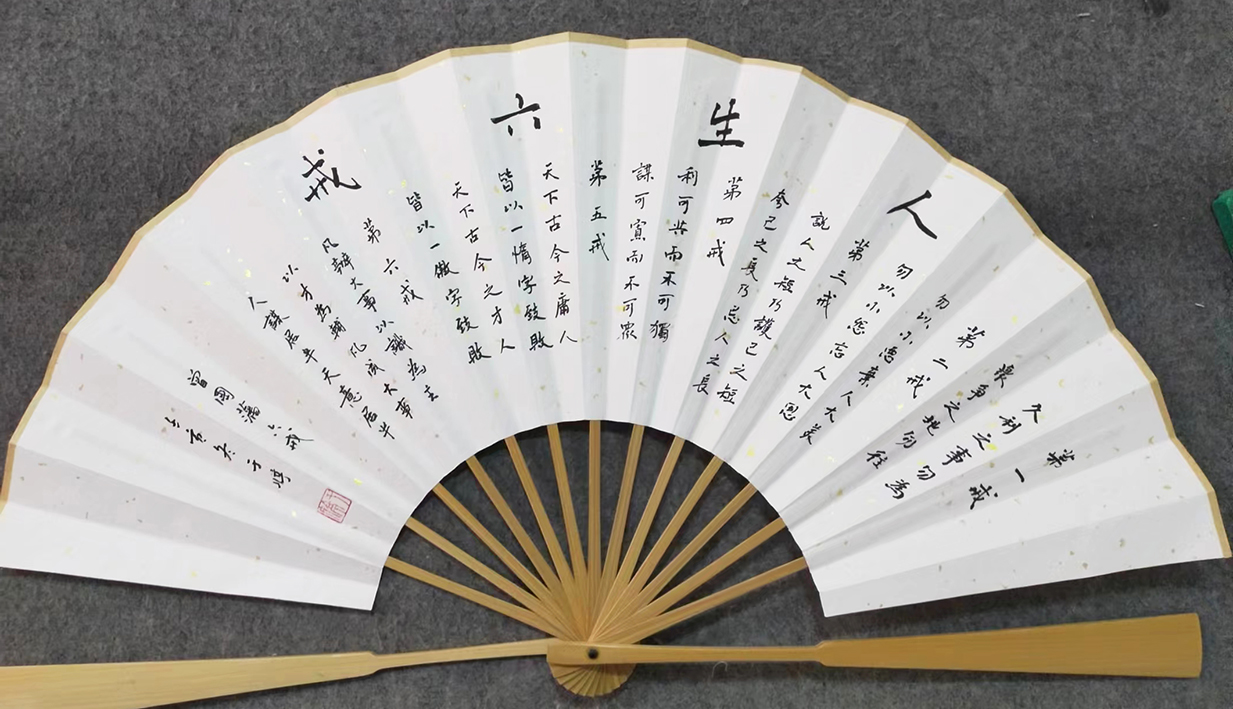 人生六戒
第一戒
久利之事勿為
眾爭之地勿往
第二戒
勿以小惡棄人大美
勿以小怨忘人大恩
第三戒
說人之短乃護己之短
夸己之長乃忌人之長
第四戒
利可共而不可獨
謀可寡而不可眾
第五戒
天下古今之庸人
皆以一惰字致敗
天下古今之才人
皆以一傲字致敗
第六戒
凡辦大事以識為主
以才為輔凡成大事
人謀居半天意居半
曾國藩六戒